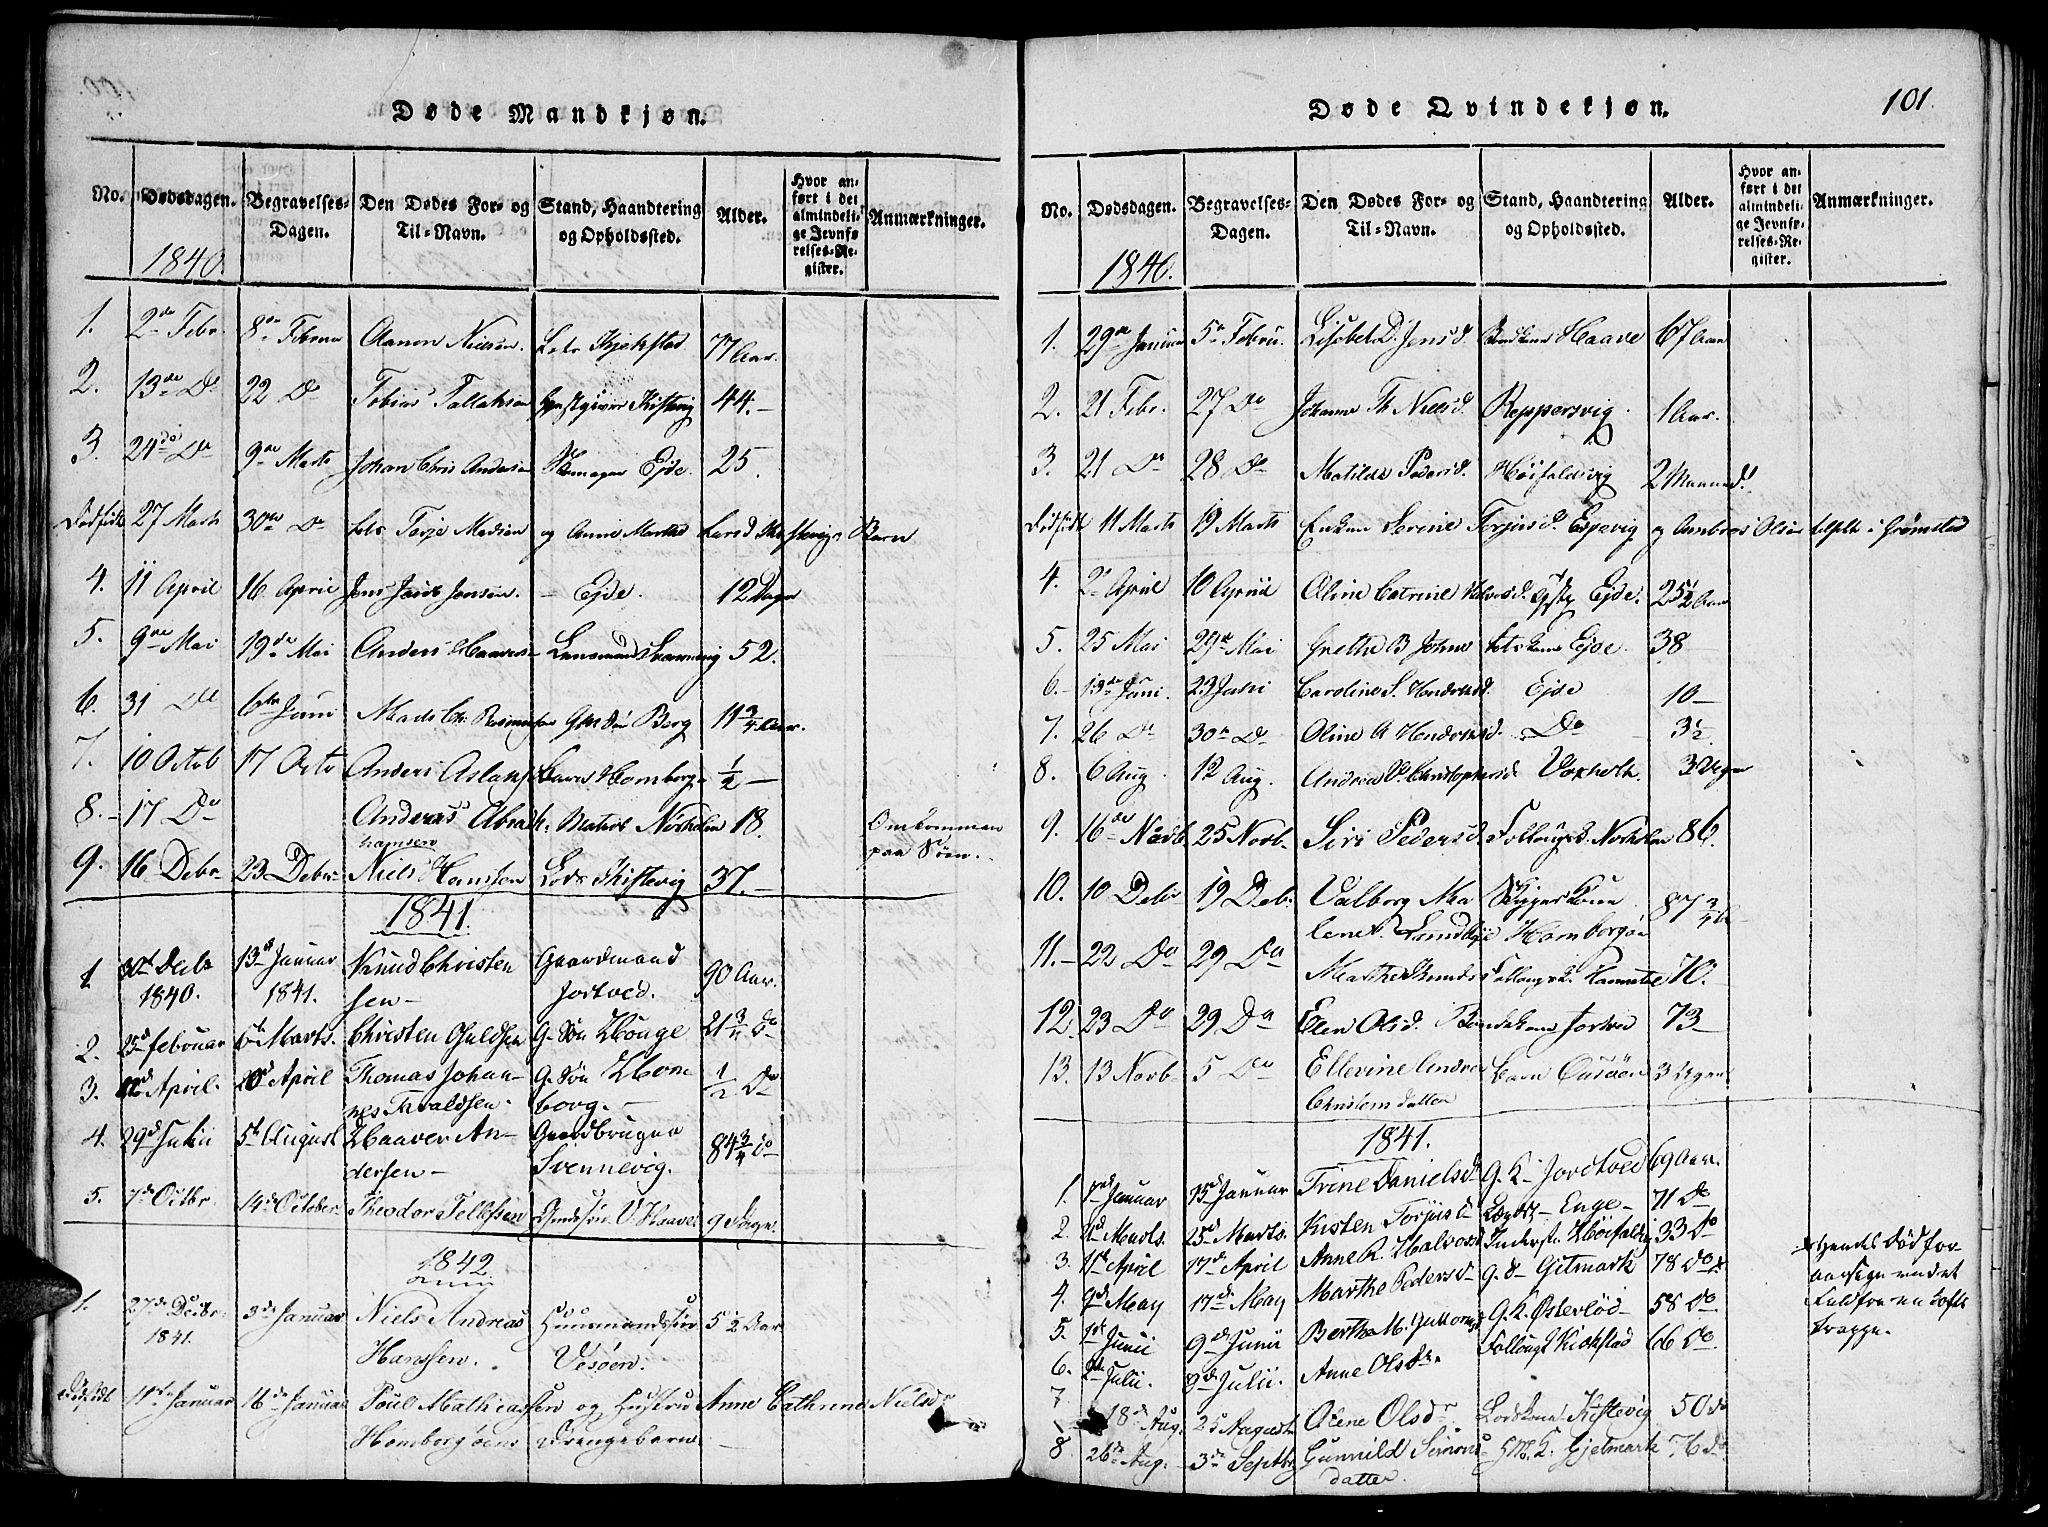 Døde Mandkjøn.
No. Dødsdagen. Begravelses-Dagen. Den Dødes For- og Til-Navn. Stand, Haandtering og Opholdssted. Alder. Hvor anført i det almindelige Jevnførelses-Register. Anmærkninger.
1840.
1. 2de Febr. 8de Februar Aanon Nielsen. Lods Kjekstad 77 Aar.
2. 13de Do 22 Do Tobias Tallaksen Gjestgiver Kistevig 44.-
3. 24de Do 9de Marts Johan Chris Andersen Eide. 25.
Dødfødt 27 Marts 30te Do Lods Terje Madsen og Anne Marthe Larsd Kistevigs Barn
4. 11 April 16 April Jens Jacob Jensen. - Eide. 12 Dage
5. 9de Mai 19de Mai Anders Haavers- Lensmand 52.
6. 31 Do 6te Juni Mads Chr. Rasmussen Berg 11 3/4 Aar.
7. 10 Octob 17 Octo Anders Aslaks Homborg 1/2 -
8. - 17 Do Andreas Abrahamsen Matros Nørholm 18. Omkommen paa Søen.
9. 16 Debr 23 Debr Niels Hanssen Lods Kistevig 37.-
1841.
1. 30te Decbr 1840. 13de Januar 1841. Knud Christensen- Gaardmand Jortved. 90 Aar.
2. 25de Februar 6te Marts. Christen Guldsen G. Søn Hauge 21 3/4 do
3. 12te April. 20de April Thomas Johannes Thvaldsen. G. Søn Homborg.- 1/2 Do
4. 29de Julii 5te August Haaver Andersen- Gaardbruger Svennevig. 84 3/4 do
5. 7de Octbr. 14de October Theodor Tellefsen V. Haave 9 Dage.
1842
1. 27de Decbr. 1841. 3de Januar Niels Andreas Hanssen. Huusmandssøn Vesøen. 5 1/2 Aar
Dødfødt 11te Januar 16de Januar Poul Mathiassen og Hustru Anne Cathrine Nielsdr Homborgøens Drengebarn -

101.
Døde Qvindekjøn.
No. Dødsdagen. Begravelses-Dagen. Den Dødes For- og Til-Navn. Stand, Haandtering og Opholdssted. Alder. Hvor anført i det almindelige Jevnførelses-Register. Anmærkninger.
1840.
1. 29de Januar 5te Febru. Lisebet D. Jensd. Haave 67 Aar
2. 21 Febr. 27 Do Johanne Th Nielsd. Reppersvig. 1 Aar.
3. 21 Do 28 Do Matilde Pedersd. Høifaldsvig 2 Maaned.
Dødfødt 11 Marts 19 Marts Enken Serine Torjusd. Espevig og Ambros Olsen i Grømstad
4. 2de April 10 April Oline Catrine Halvorsd. Eide. 25 1/2 Aar
5. 25 Mai 29de Mai Grethe B Johns Lods kone Eide. 38
6.- 13de Juni. 23 Juni Caroline S. Hendriksd. Eide 10 -
7. 26 Do 30te Do Oline A Hendriksd. Do 3 1/2
8. 6 Aug. 12 Aug. Andrea Christophersd Voxholt. 3 Uger
9. 16de Novb. 25 Novb- Siri Pedersd. Follaugsk. Norholm 86.
10. 10 Debr 19 Deb. Valborg Malene Lundbye Skippers Kone Homborgøen 87 3/4
11.- 22 Do 29 Do Marthe Knuds Follaugsk. 70.
12. 23 Do 29 Do Elen Olsd. Bondekone Jortve 73-
13. 13 Novb. 5 Do Ellevine Andrea Christensdatter Barn 3 Uger
1841.
1. Januar 15de Januar Trine Danielsd. G. K. Jortved 69 Aar.
2. Marts. 25de Marts. Kisten Torjusd. - Enge - 71 Do
3. 11te April 17de April Anne R. Halvorsd Inderst. Høifaldsvig 33 do
4. 9de May 17de May Marthe Pedersd- G. d- Gitmark 78 Do x
5. Junii 9de Junii Bertha M. G. K. Østerlød- 58 Do x Hendes Død foraarsagedes ved et Fald fra en Loftstrappe.
6. Julii. 9de Julii. Anne Olsdr. Follaugs Kickstad 66 Do.
7 18de Aug. 25 August Olene Olsdr Lodskone Kistevig 50 do
8 26de Aug. 3de Septbr Gunnild Simonsdatter. K. Gjetmark 76 do